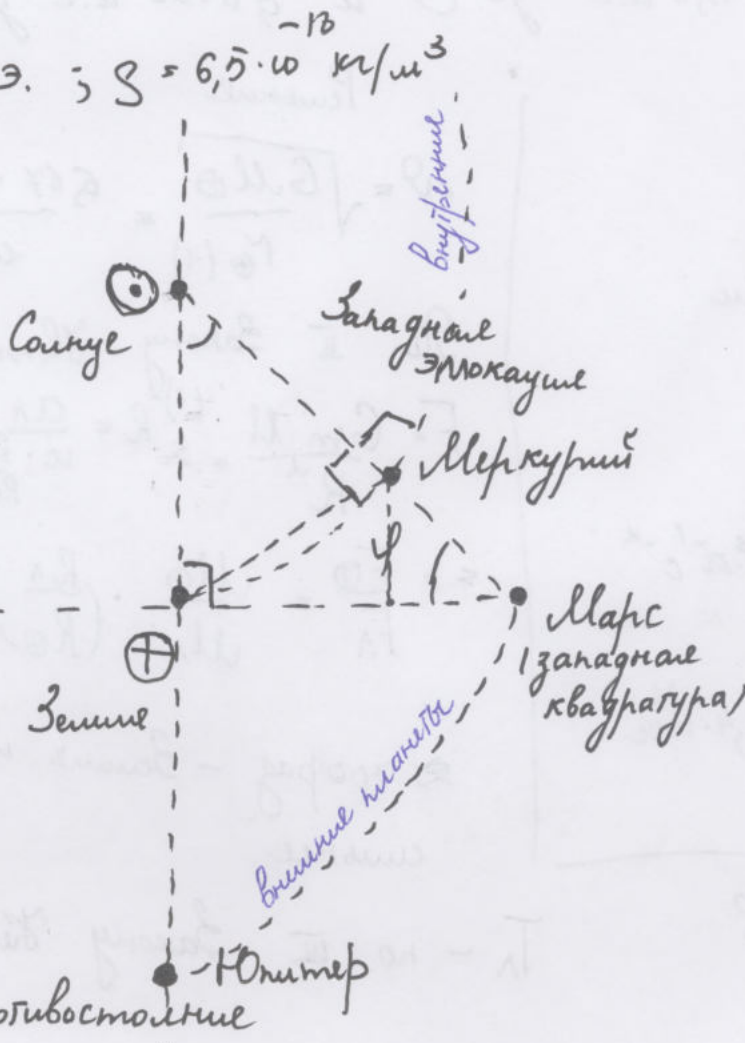 э. ; ρ = 6,5·10⁻¹³ кг/м³
внутренние
Солнце
Западная
элокация
Меркурий
φ
Марс
(западная
квадратура)
Земля
внешние планеты
Юпитер
отивостояние